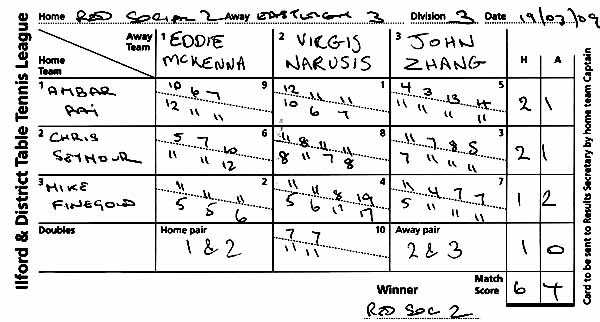 Ilford & District Table Tennis League
Home RED SOCIAL 2 Away EASTLEIGH 3 Division 3 Date 19/03/09
Away Team 1 EDDIE MCKENNA 2 VIRGIS NARUSIS 3 JOHN ZHANG H A
Home Team
1 AMBAR RAI
10 6 7 9
12 11 11
12 11 11 1
10 6 7
4 3 13 11 5
11 11 11 11
2 1
2 CHRIS SEYMOUR
5 7 10 6
11 11 12
11 8 11 11 8
8 11 7 8
11 7 8 5 3
7 11 11 11
2 1
3 MIKE FINEGOLD
11 11 11 2
5 5 6
11 11 8 19 4
5 6 11 17
11 4 7 7 7
5 11 11 11
1 2
Doubles
Home pair
1 & 2
7 7 10
11 11
Away pair
2 & 3
1 0
Winner
RED SOC 2
Match Score 6 4
Card to be sent to Results Secretary by home team Captain